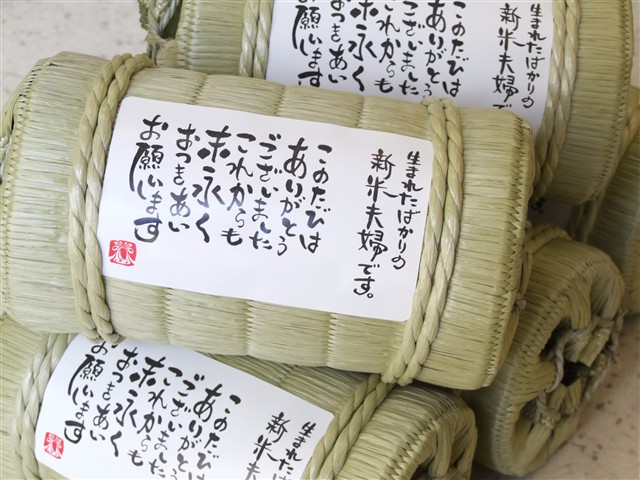 生まれたばかりの
新米夫婦です。
このたびは
ありがとう
ございました
これからも
末永く
おつきあい
お願いします
生まれたばかりの
新米夫婦で
このたびは
ありがとう
ございました
これからも
末永く
おつきあい
お願いします
生まれたば
新米夫
このたびは
ありがとう
ございました
これからも
末永く
おつきあい
お願いします